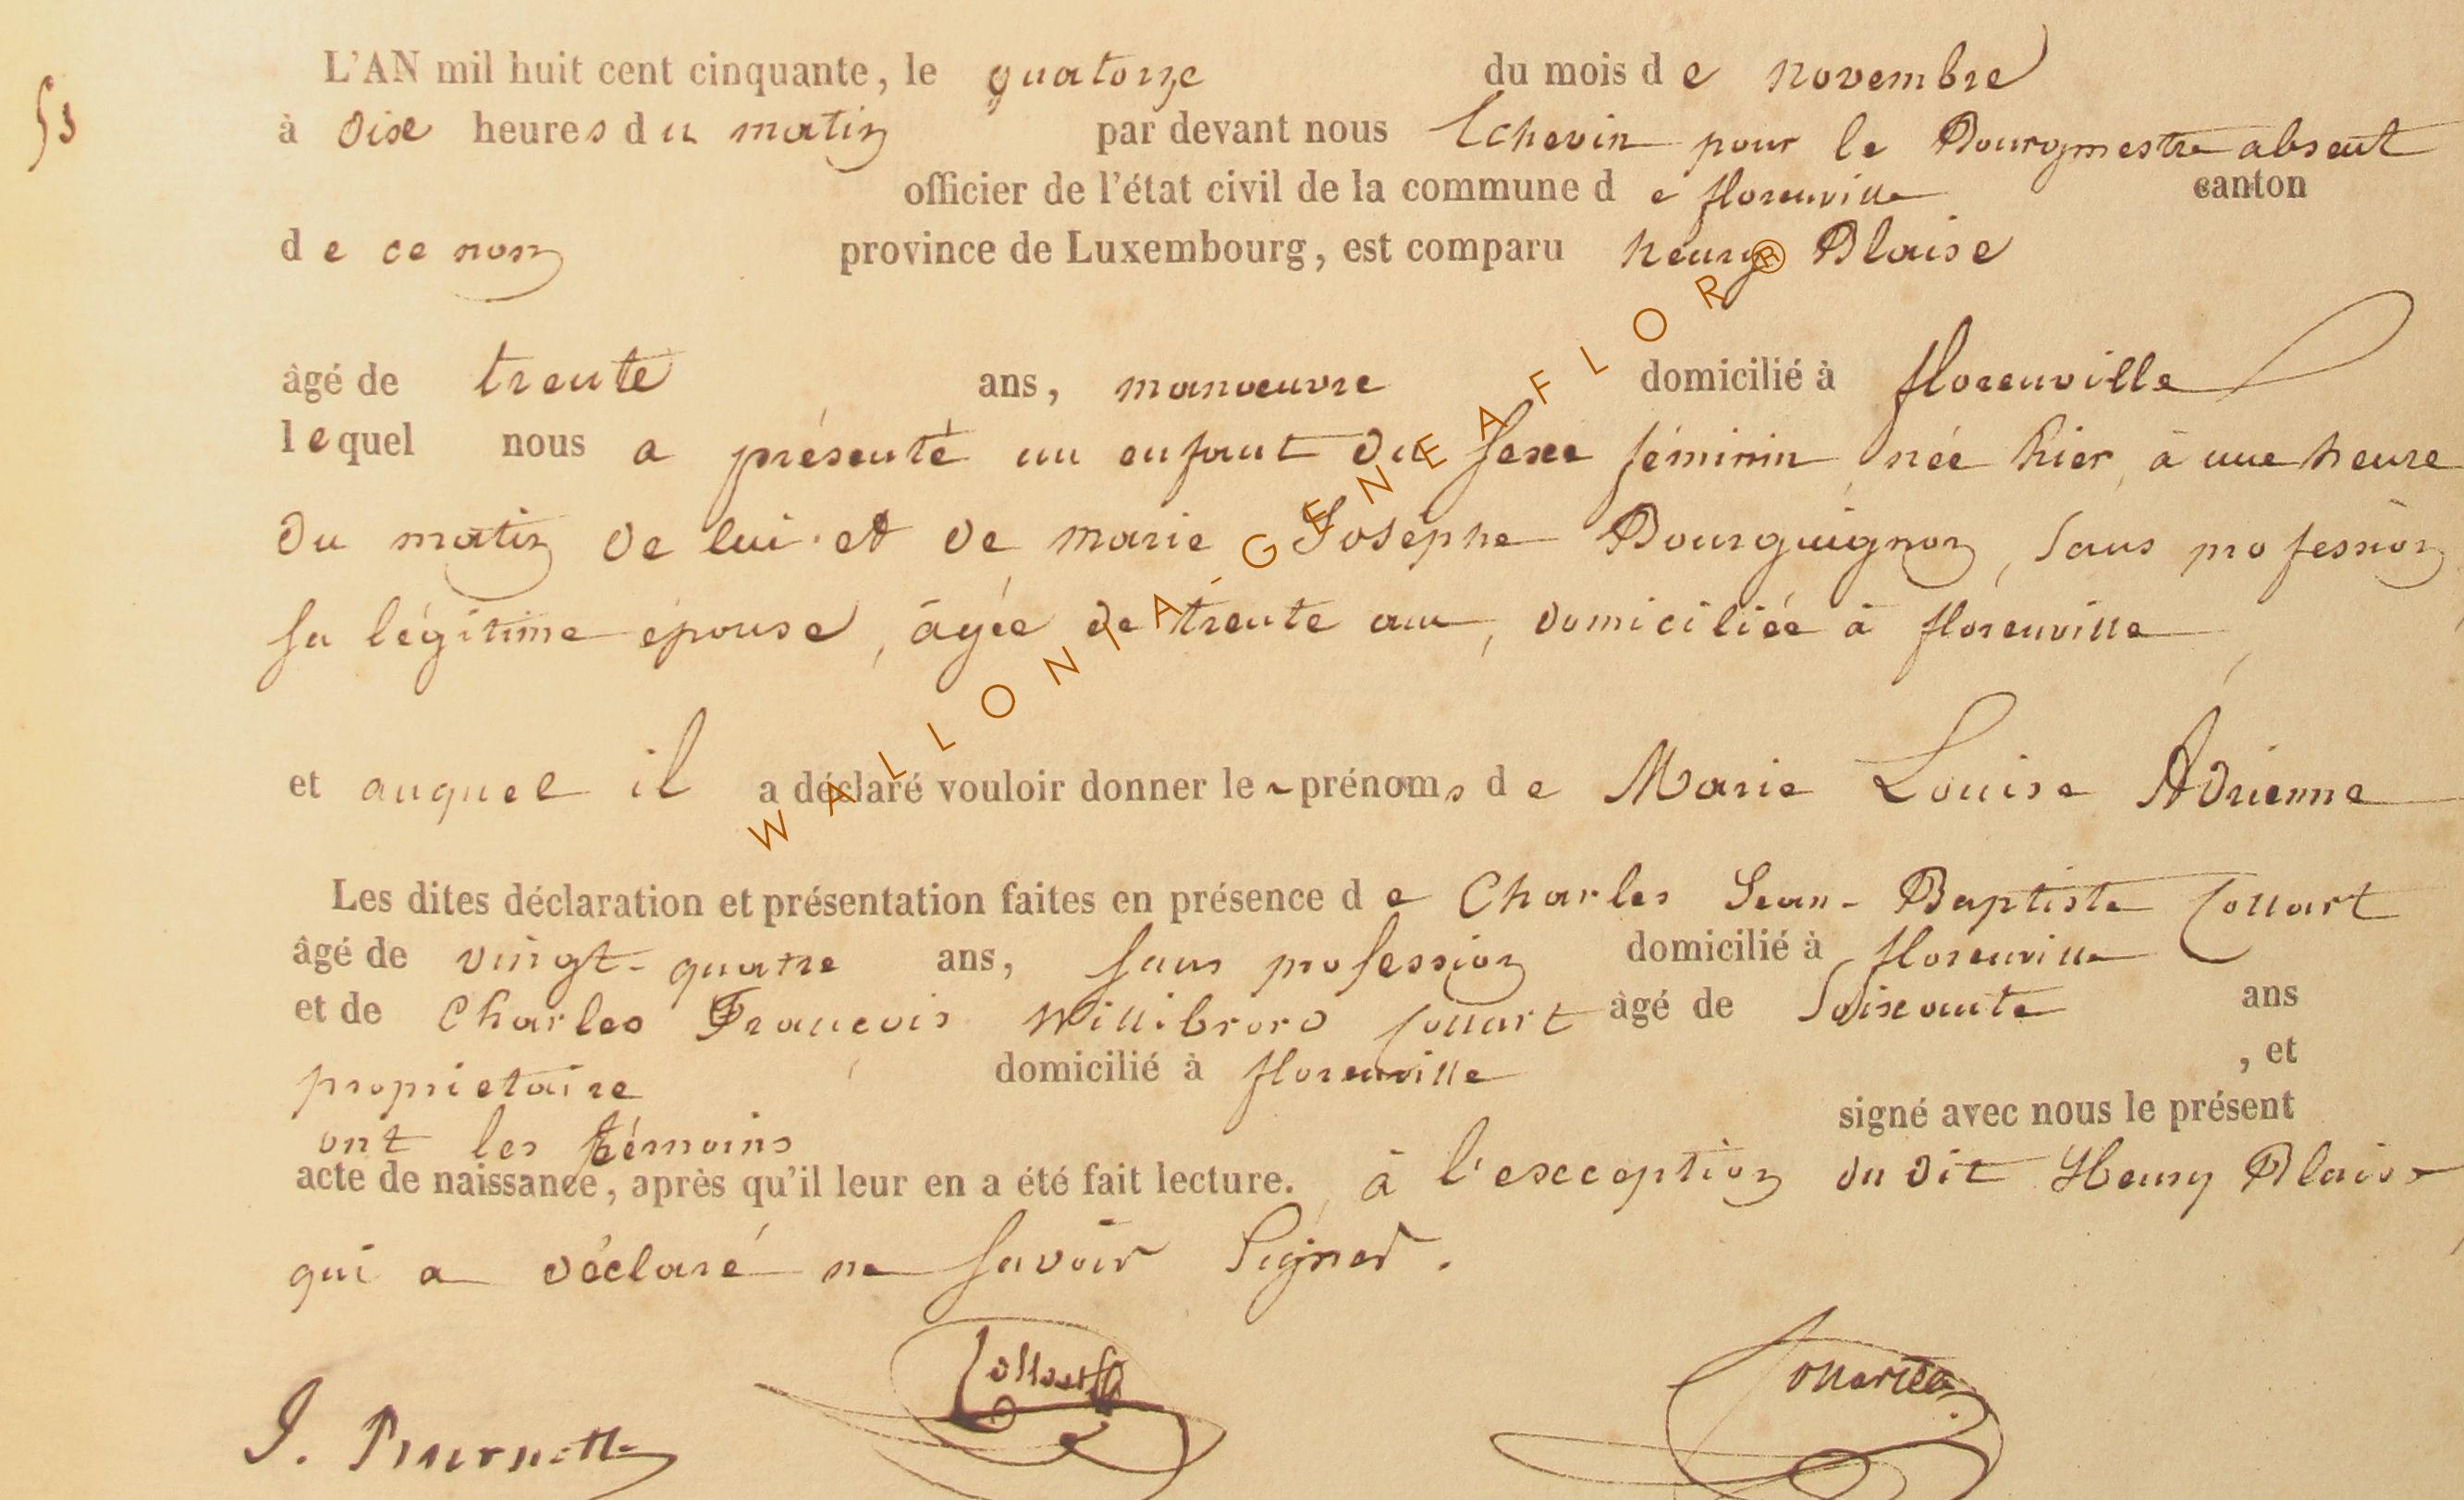 L'AN mil huit cent cinquante, le quatorze du mois de novembre
53
à dixe heures du matin par devant nous Echevin pour le Bourgmestre absent
officier de l'état civil de la commune de florenville canton
de ce nom province de Luxembourg, est comparu henry Blaise
âgé de trente ans, manoeuvre domicilié à florenville
lequel nous a présenté un enfant du sexe féminin, née hier, à une heure
du matin de lui et de marie Josephe Bourguignon, sans profession
sa légitime épouse, âgée de trente ans, domiciliée à florenville,
et auquel il a déclaré vouloir donner les prénoms de Marie Louise Adrienne
Les dites déclaration et présentation faites en présence de Charles Jean-Baptiste Collart
âgé de vingt-quatre ans, sans profession domicilié à florenville
et de Charles François Willibrord Collart âgé de Soixante ans
proprietaire domicilié à florenville , et
ont les témoins signé avec nous le présent
acte de naissance, après qu'il leur en a été fait lecture. à l'exception du dit Henry Blaise
qui a déclaré ne savoir Signer.
J. Collart
WALLONIA-GENEAFLOR®